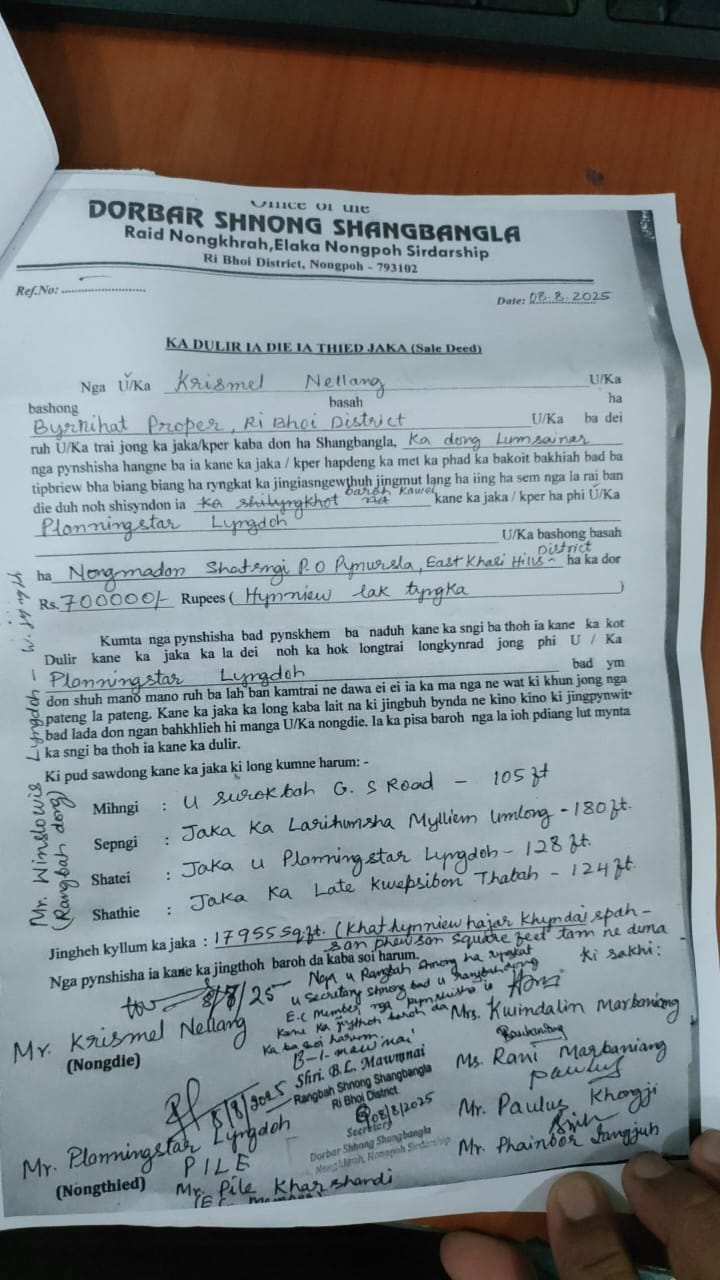 Office of the
DORBAR SHNONG SHANGBANGLA
Raid Nongkhrah,Elaka Nongpoh Sirdarship
Ri Bhoi District, Nongpoh - 793102
Ref.No: ........................
Date: 08.8.2025
KA DULIR IA DIE IA THIED JAKA (Sale Deed)
Nga U/Ka Krismel Nellang U/Ka
bashong basah ha
Byrnihat Proper, Ri Bhoi District U/Ka ba dei
ruh U/Ka trai jong ka jaka/kper kaba don ha Shangbangla, Ka dong Lumsainar
nga pynshisha hangne ba ia kane ka jaka / kper hapdeng ka met ka phad ka bakoit bakhiah bad ba
tipbriew bha biang biang ha ryngkat ka jingiasngewthuh jingmut lang ha iing ha sem nga la rai ban
die duh noh shisyndon ia Ka shilyngkhot baroh kawei kane ka jaka / kper ha phi U/Ka
Planningstar Lyngdoh
U/Ka bashong basah
ha Nongmadon Shatsngi P.O Pynursla, East Khasi Hills District ha ka dor
Rs. 700000/- Rupees ( Hynniew lak tyngka )
Kumta nga pynshisha bad pynskhem ba naduh kane ka sngi ba thoh ia kane ka kot
Dulir kane ka jaka ka la dei noh ka hok longtrai longkynrad jong phi U / Ka
Planningstar Lyngdoh bad ym
don shuh mano mano ruh ba lah ban kamtrai ne dawa ei ei ia ka ma nga ne wat ki khun jong nga
pateng la pateng. Kane ka jaka ka long kaba lait na ki jingbuh bynda ne kino kino ki jingpynwit
bad lada don ngan bahkhlieh hi manga U/Ka nongdie. Ia ka pisa baroh nga la ioh pdiang lut mynta
ka sngi ba thoh ia kane ka dulir.
Mr. Winslowis Lyngdoh - W.
(Rangbah dong)
Ki pud sawdong kane ka jaka ki long kumne harum: -
Mihngi : U surok bah G. S Road - 105 ft
Sepngi : Jaka Ka Larihunsha Mylliem Umlong - 180 ft.
Shatei : Jaka u Planningstar Lyngdoh - 128 ft.
Shathie : Jaka Ka Late Kwepsibon Thabah - 124 ft.
Jingheh kyllum ka jaka : 17955 sq.ft. (Khathynniew hajar Khyndai spah -
san phew san square feet tam ne duna
Nga pynshisha ia kane ka jingthoh baroh da kaba soi harum.
8/8/25
Mr. Krismel Nellang
(Nongdie)
Nga u Rangbah Shnong ha ryngkat
u Secretary Shnong bad u
E.C Member nga pynshisha ia
Kane ka jingthoh baroh da
Ka ba soi harum
B-L-mawnai
Shri. B.L. Mawmnai
Rangbah Shnong Shangbangla
Ri Bhoi District
08/8/2025
Secretary
Dorbar Shnong Shangbangla
Nongkhrah, Nongpoh Sirdarship
ki sakhi:
Mrs. Kwindalin Marbaniang
Ms. Rani Marbaniang
paulus
Mr. Paulus Khongji
Mr. Phainbor Langjuh
8/8/2025
Mr. Planningstar Lyngdoh
(Nongthied)
PILE
Mr. Pile Kharshandi
(E.C. Member)